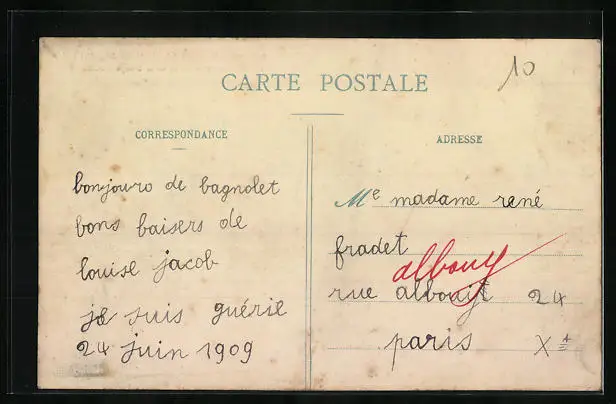 10
CARTE POSTALE
CORRESPONDANCE
bonjouro de bagnolet
bons baisers de
louise jacob
je suis guérie
24 juin 1909
ADRESSE
Me madame rené
fradet
albouy
rue albouit 24
paris X